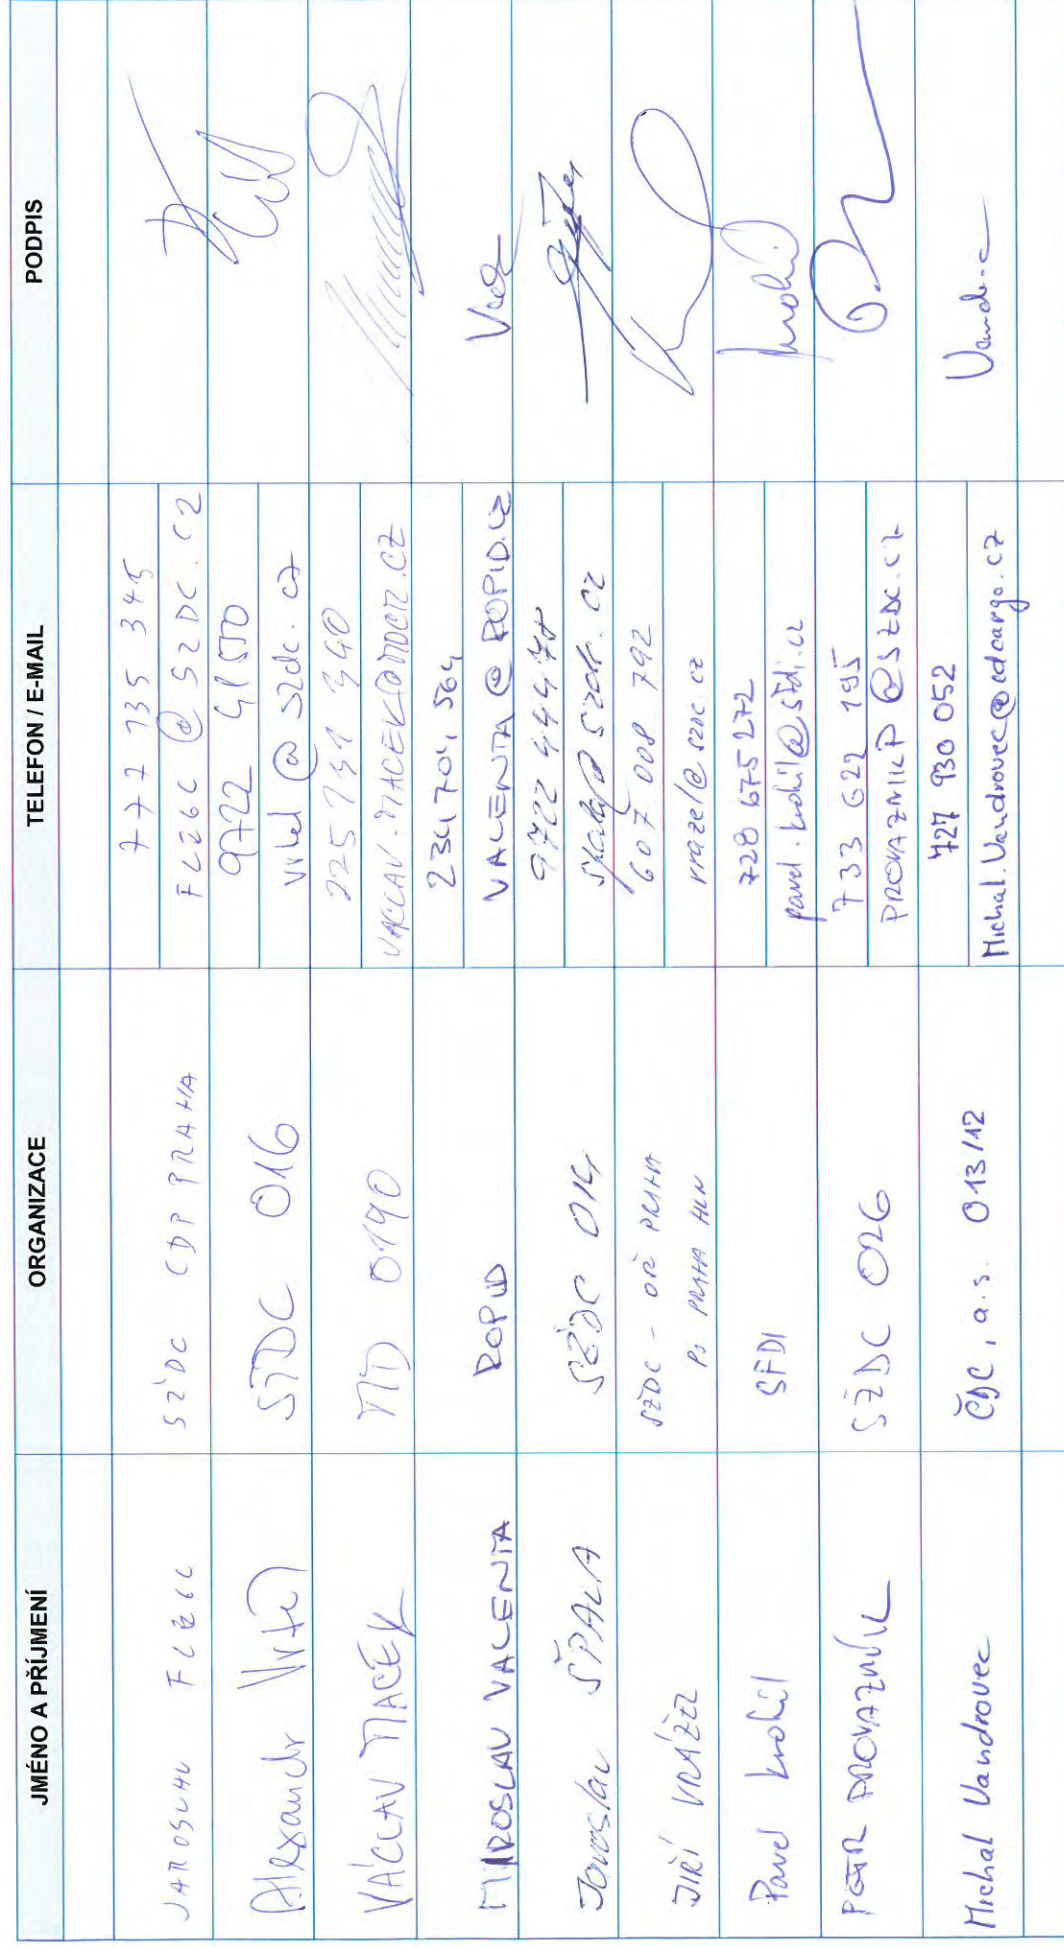 JMÉNO A PŘÍJMENÍ ORGANIZACE TELEFON / E-MAIL PODPIS
JAROSLAV SŽDC CDP PRAHA 777 735 345
@SZDC.CZ
Alexandr SŽDC 016 9722 41550
vrtel@szdc.cz
VÁCLAV MACEK MD O190 225 131 340
VACLAV.MACEK@MDCR.CZ
MIROSLAV VALENTA ROPID 234 704 564
VALENTA@ROPID.CZ
Jaroslav ŠPALA SŽDC O14 9722 444 78
Spala@szdc.cz
JIŘÍ VRÁŽEL SŽDC - OŘ PRAHA 607 008 792
PO PRAHA HLN vrazel@szdc.cz
Pavel Krohil SFDI 728 675 272
pavel.krohil@sfdi.cz
PETR PROVAZNÍK SŽDC O26 733 622 195
PROVAZNIKP@SZDC.CZ
Michal Vandrovec ČDC, a.s. 013/12 727 930 052
Michal.Vandrovec@cdcargo.cz